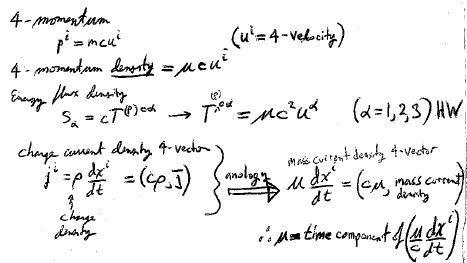 4-momentum
pⁱ = mcuⁱ (uⁱ = 4-velocity)
4-momentum density = μcuⁱ
Energy flux density
Sα = cT^(p)oα → T^(p)oα = μc²u^α (α = 1,2,3) HW
charge current density 4-vector
jⁱ = ρ dxⁱ/dt = (cρ, J)
charge density
analogy
mass current density 4-vector
μ dxⁱ/dt = (cμ, mass current density)
∴ μ = time component of (μ/c dxⁱ/dt)